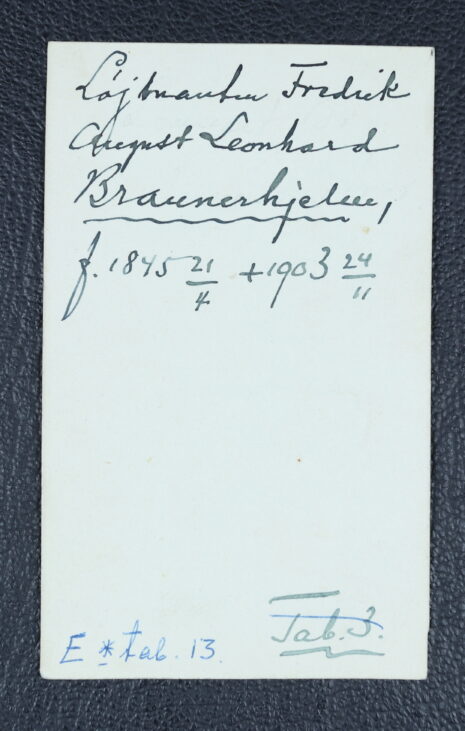 Löjtnanten Fredrik
August Leonhard
Braunerhjelm,
f. 1845 21/4 +1903 24/11
Tab. 3.
E * tab. 13.